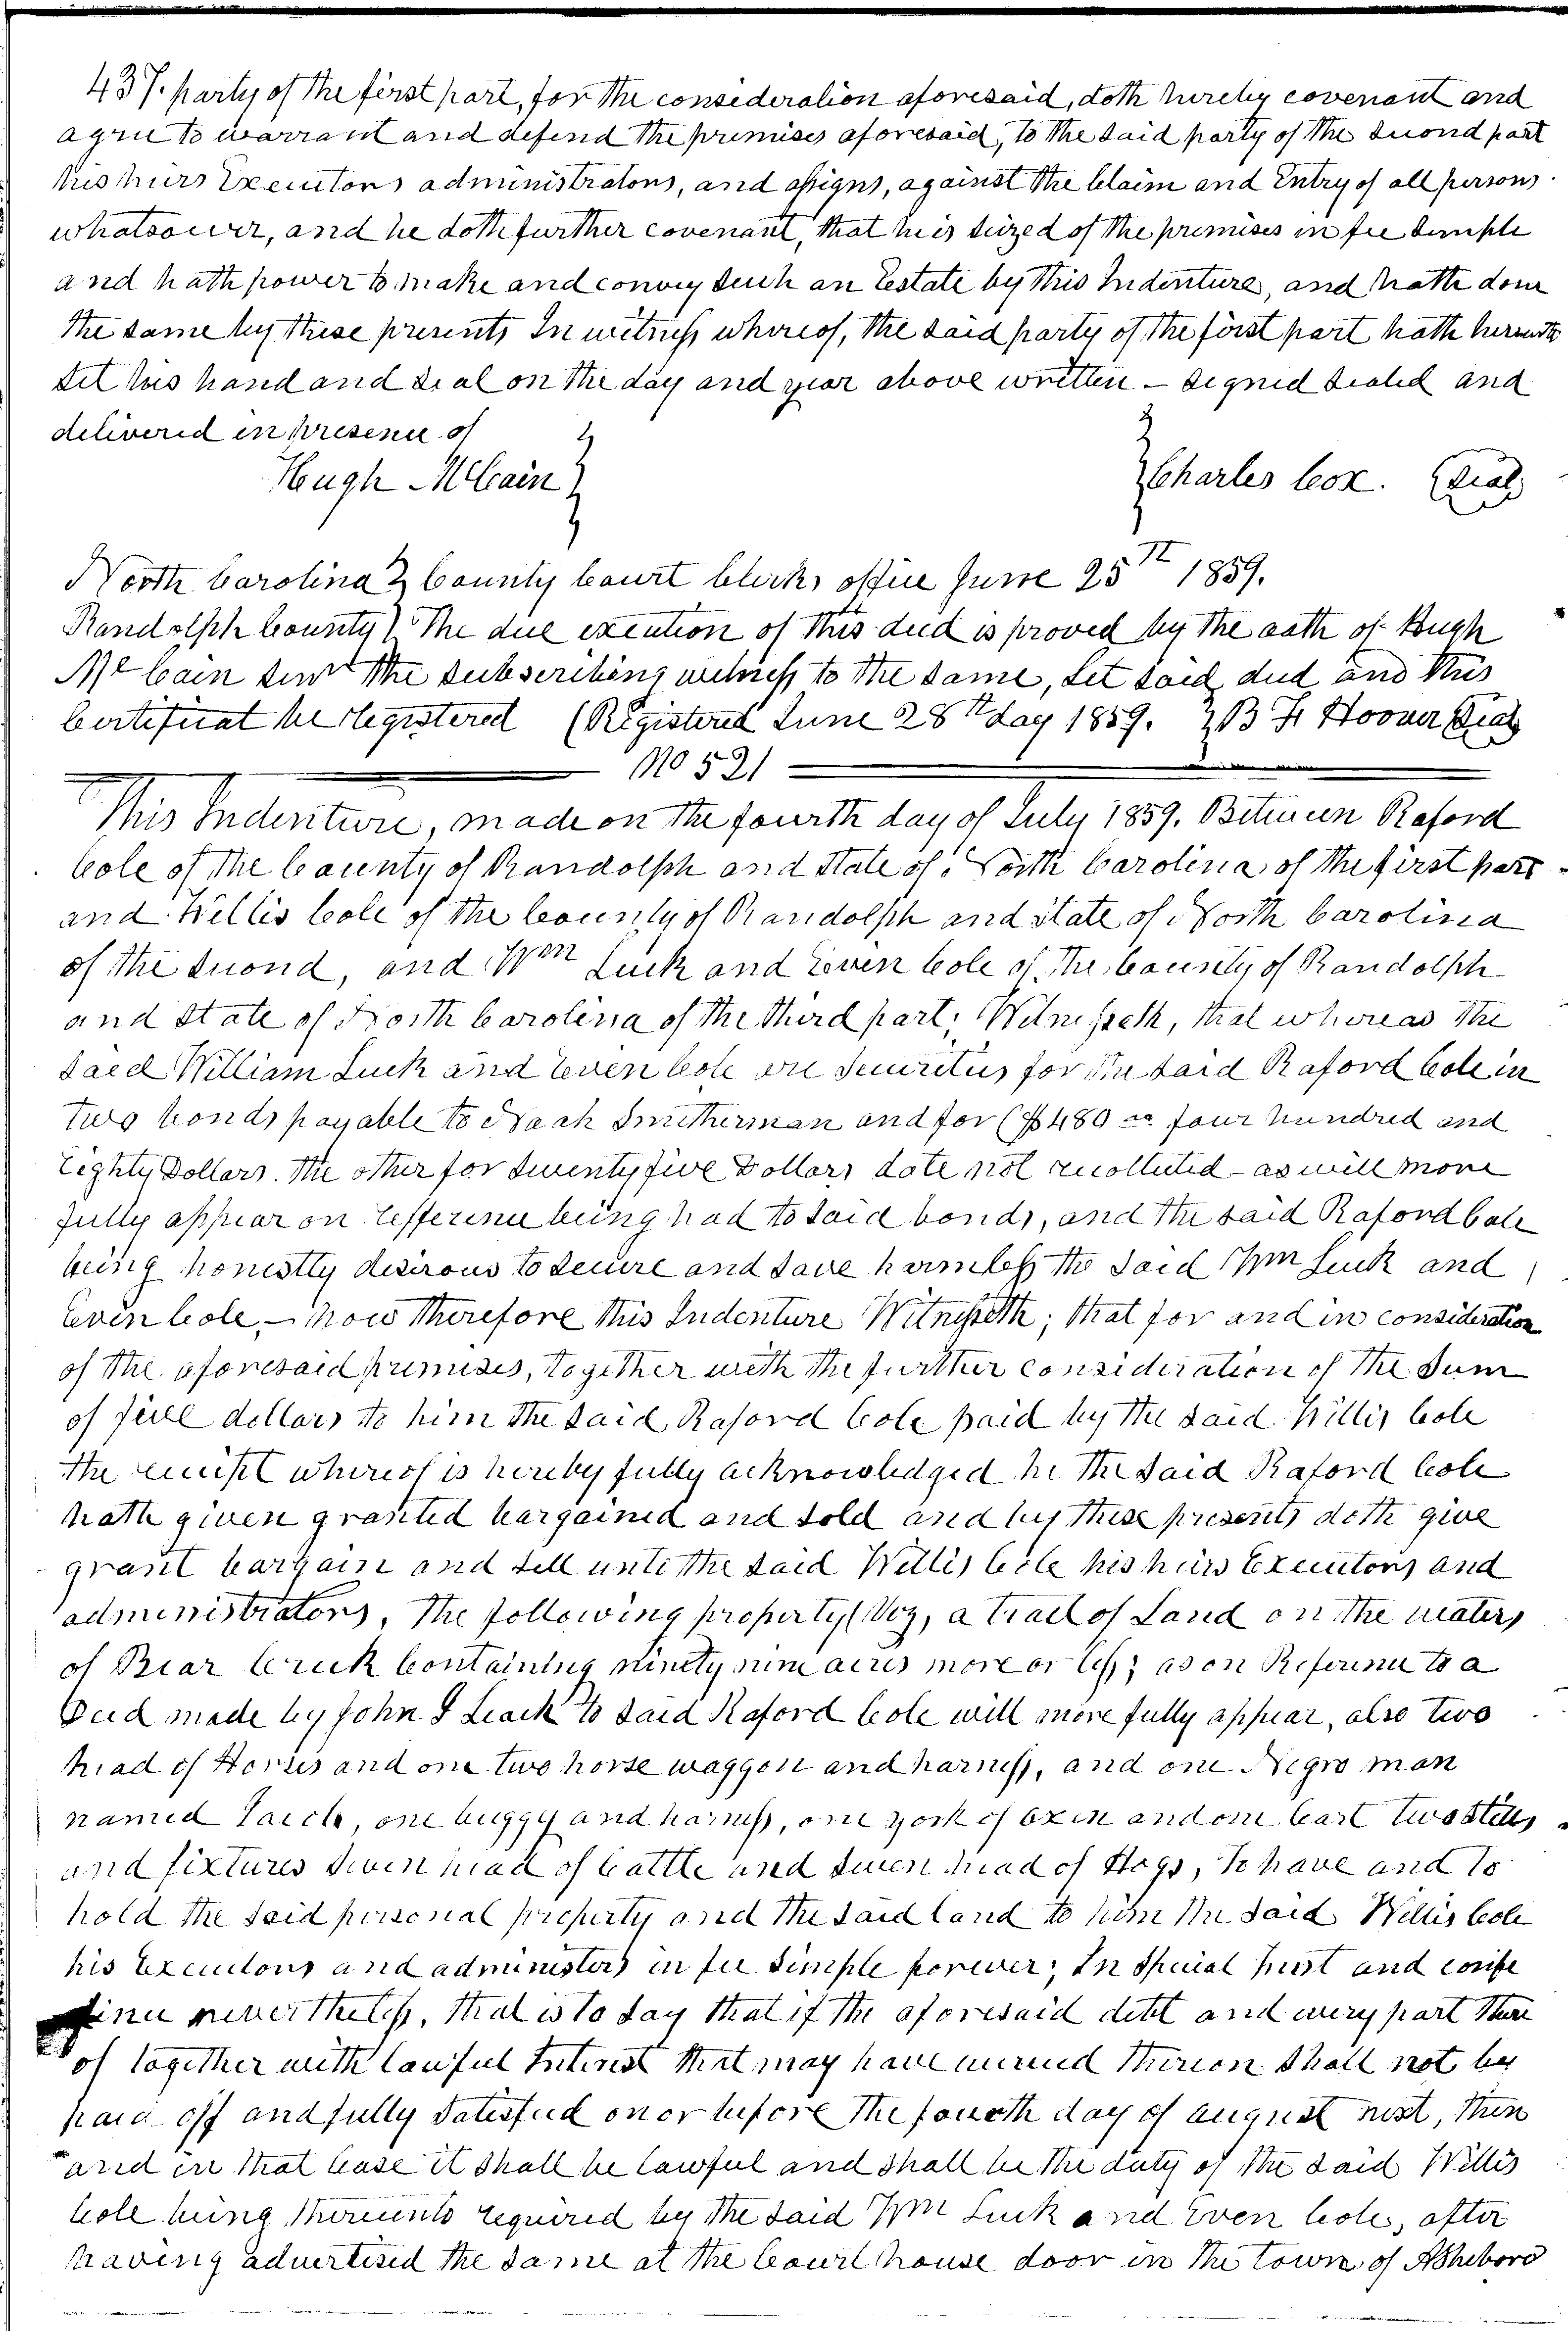 437. party of the first part, for the consideration aforesaid, doth hereby covenant and
agree to warrant and defend the premises aforesaid, to the said party of the second part
his heirs Executors administrators, and assigns, against the Claim and Entry of all persons
whatsoever, and he doth further covenant, that he is seized of the premises in fee simple
and hath power to make and convey such an Estate by this Indenture, and hath done
the same by these presents In witness whereof, the said party of the first part hath hereunto
set his hand and seal on the day and year above written – signed sealed and
delivered in presence of
Hugh McCain } { Charles Cox. (Seal)
North Carolina } County Court Clerks office June 25th 1859.
Randolph County } The due execution of this deed is proved by the oath of Hugh
McCain the subscribing witness to the same, Let said deed and this
Certificat be registered (Registered June 28th day 1859. } B F Hoover Seal
No 521
This Indenture, made on the fourth day of July 1859. Between Raford
Cole of the County of Randolph and State of North Carolina of the first part
and Willis Cole of the County of Randolph and State of North Carolina
of the second, and Wm Luck and Even Cole of the County of Randolph
and State of North Carolina of the third part; Witnesseth, that whereas the
said William Luck and Even Cole are Securities for the said Raford Cole in
two bonds payable to Noah Smitherman and for ($480 00 four hundred and
Eighty Dollars. the other for twenty five Dollars date not recollected – as will more
fully appear on Refference being had to said bonds, and the said Raford Cole
being honestly desirous to secure and save harmless the said Wm Luck and
Even Cole, – now therefore this Indenture Witnesseth; that for and in consideration
of the aforesaid premises, together with the further consideration of the Sum
of five dollars to him the said Raford Cole paid by the said Willis Cole
the receipt whereof is hereby fully acknowledged he the said Raford Cole
hath given granted bargained and sold and by these presents doth give
grant bargain and sell unto the said Willis Cole his heirs Executors and
administrators, The following property (Viz, a tract of Land on the waters
of Bear Creek Containing ninety nine acres more or less; as on Reference to a
Deed made by John Leach to said Raford Cole will more fully appear, also two
head of Horses and one two horse waggon and harness, and one Negro man
named one buggy and harness, one york of oxin and one Cart two Stills
and fixtures seven head of Cattle and seven head of Hogs, To have and to
hold the said personal property and the said land to him the said Willis Cole
his Executors and administers in fee simple forever; In Special trust and confi
dince nevertheless, that is to say that if the aforesaid debt and every part there
of together with lawful Interest that may have accrued thereon shall not be
paid off and fully satisfied on or before the fourth day of august next, then
and in that Case it shall be lawful and shall be the duty of the said Willis
Cole being thereunto required by the said Wm Luck and Even Cole, after
having advertised the same at the Court house door in the town of Asheboro